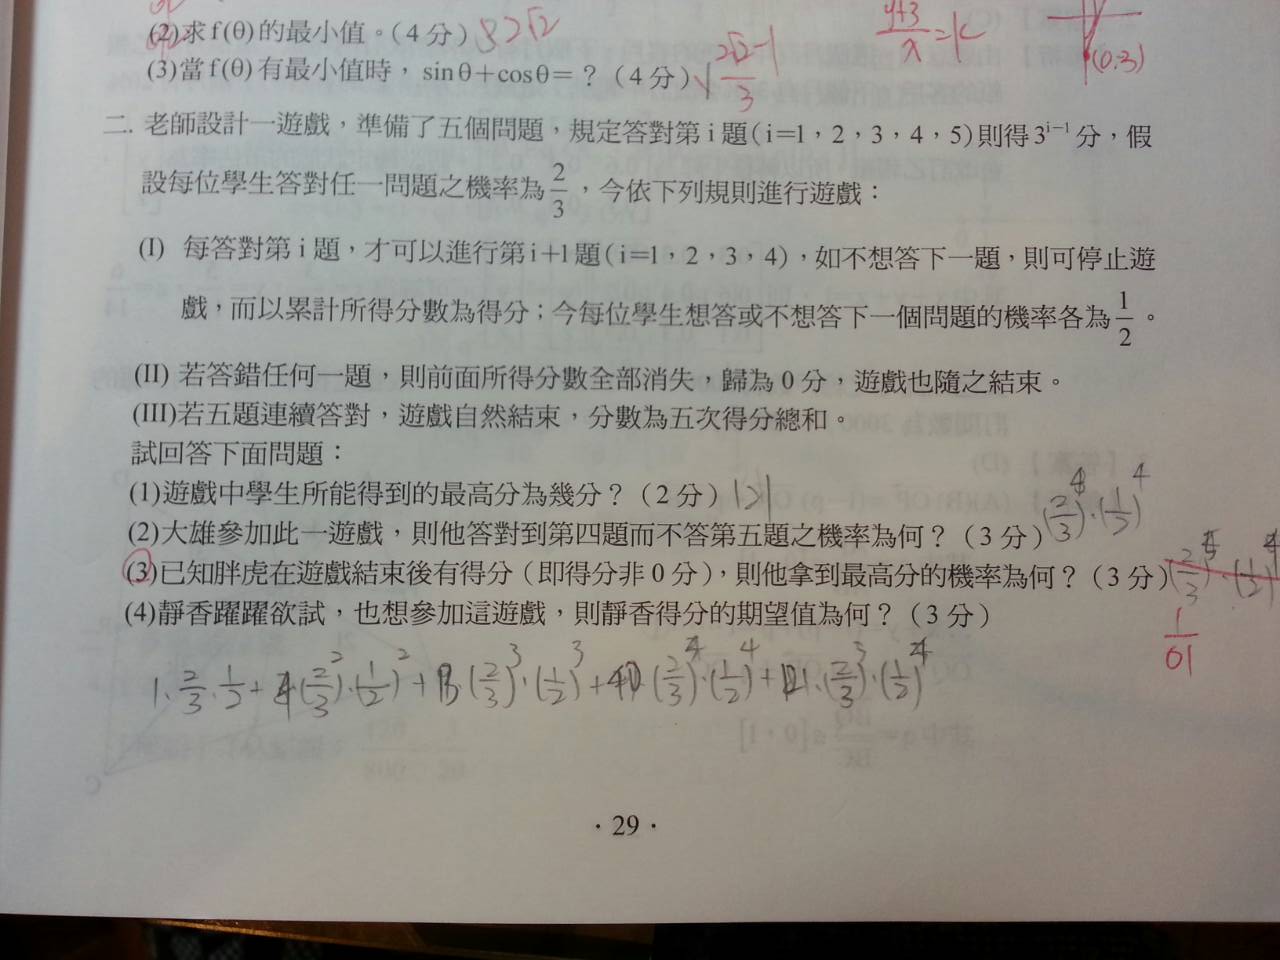 (2)求f(θ)的最小值。(4分) 2√2 y+3/x=k
(3)當f(θ)有最小值時，sinθ+cosθ=？(4分) 2√2-1/3 (0.3)
二. 老師設計一遊戲，準備了五個問題，規定答對第i題(i=1，2，3，4，5)則得3^(i-1)分，假
設每位學生答對任一問題之機率為2/3，今依下列規則進行遊戲：
(I) 每答對第i題，才可以進行第i+1題(i=1，2，3，4)，如不想答下一題，則可停止遊
戲，而以累計所得分數為得分；今每位學生想答或不想答下一個問題的機率各為1/2。
(II) 若答錯任何一題，則前面所得分數全部消失，歸為0分，遊戲也隨之結束。
(III)若五題連續答對，遊戲自然結束，分數為五次得分總和。
試回答下面問題：
(1)遊戲中學生所能得到的最高分為幾分？(2分) 121
(2)大雄參加此一遊戲，則他答對到第四題而不答第五題之機率為何？(3分) (2/3)^4·(1/2)^4
(3)已知胖虎在遊戲結束後有得分（即得分非0分），則他拿到最高分的機率為何？(3分)
1/61
(4)靜香躍躍欲試，也想參加這遊戲，則靜香得分的期望值為何？(3分)
1·2/3·1/2+4(2/3)^2·(1/2)^2+13·(2/3)^3·(1/2)^3+40·(2/3)^4·(1/2)^4+121·(2/3)^3·(1/2)^4
·29·